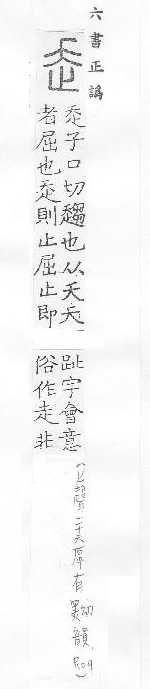 六書正譌
𧺆子口切趨也从夭夭
者屈也𧺆則止屈止即
趾字會意
俗作走非
(上聲 厚有 韻